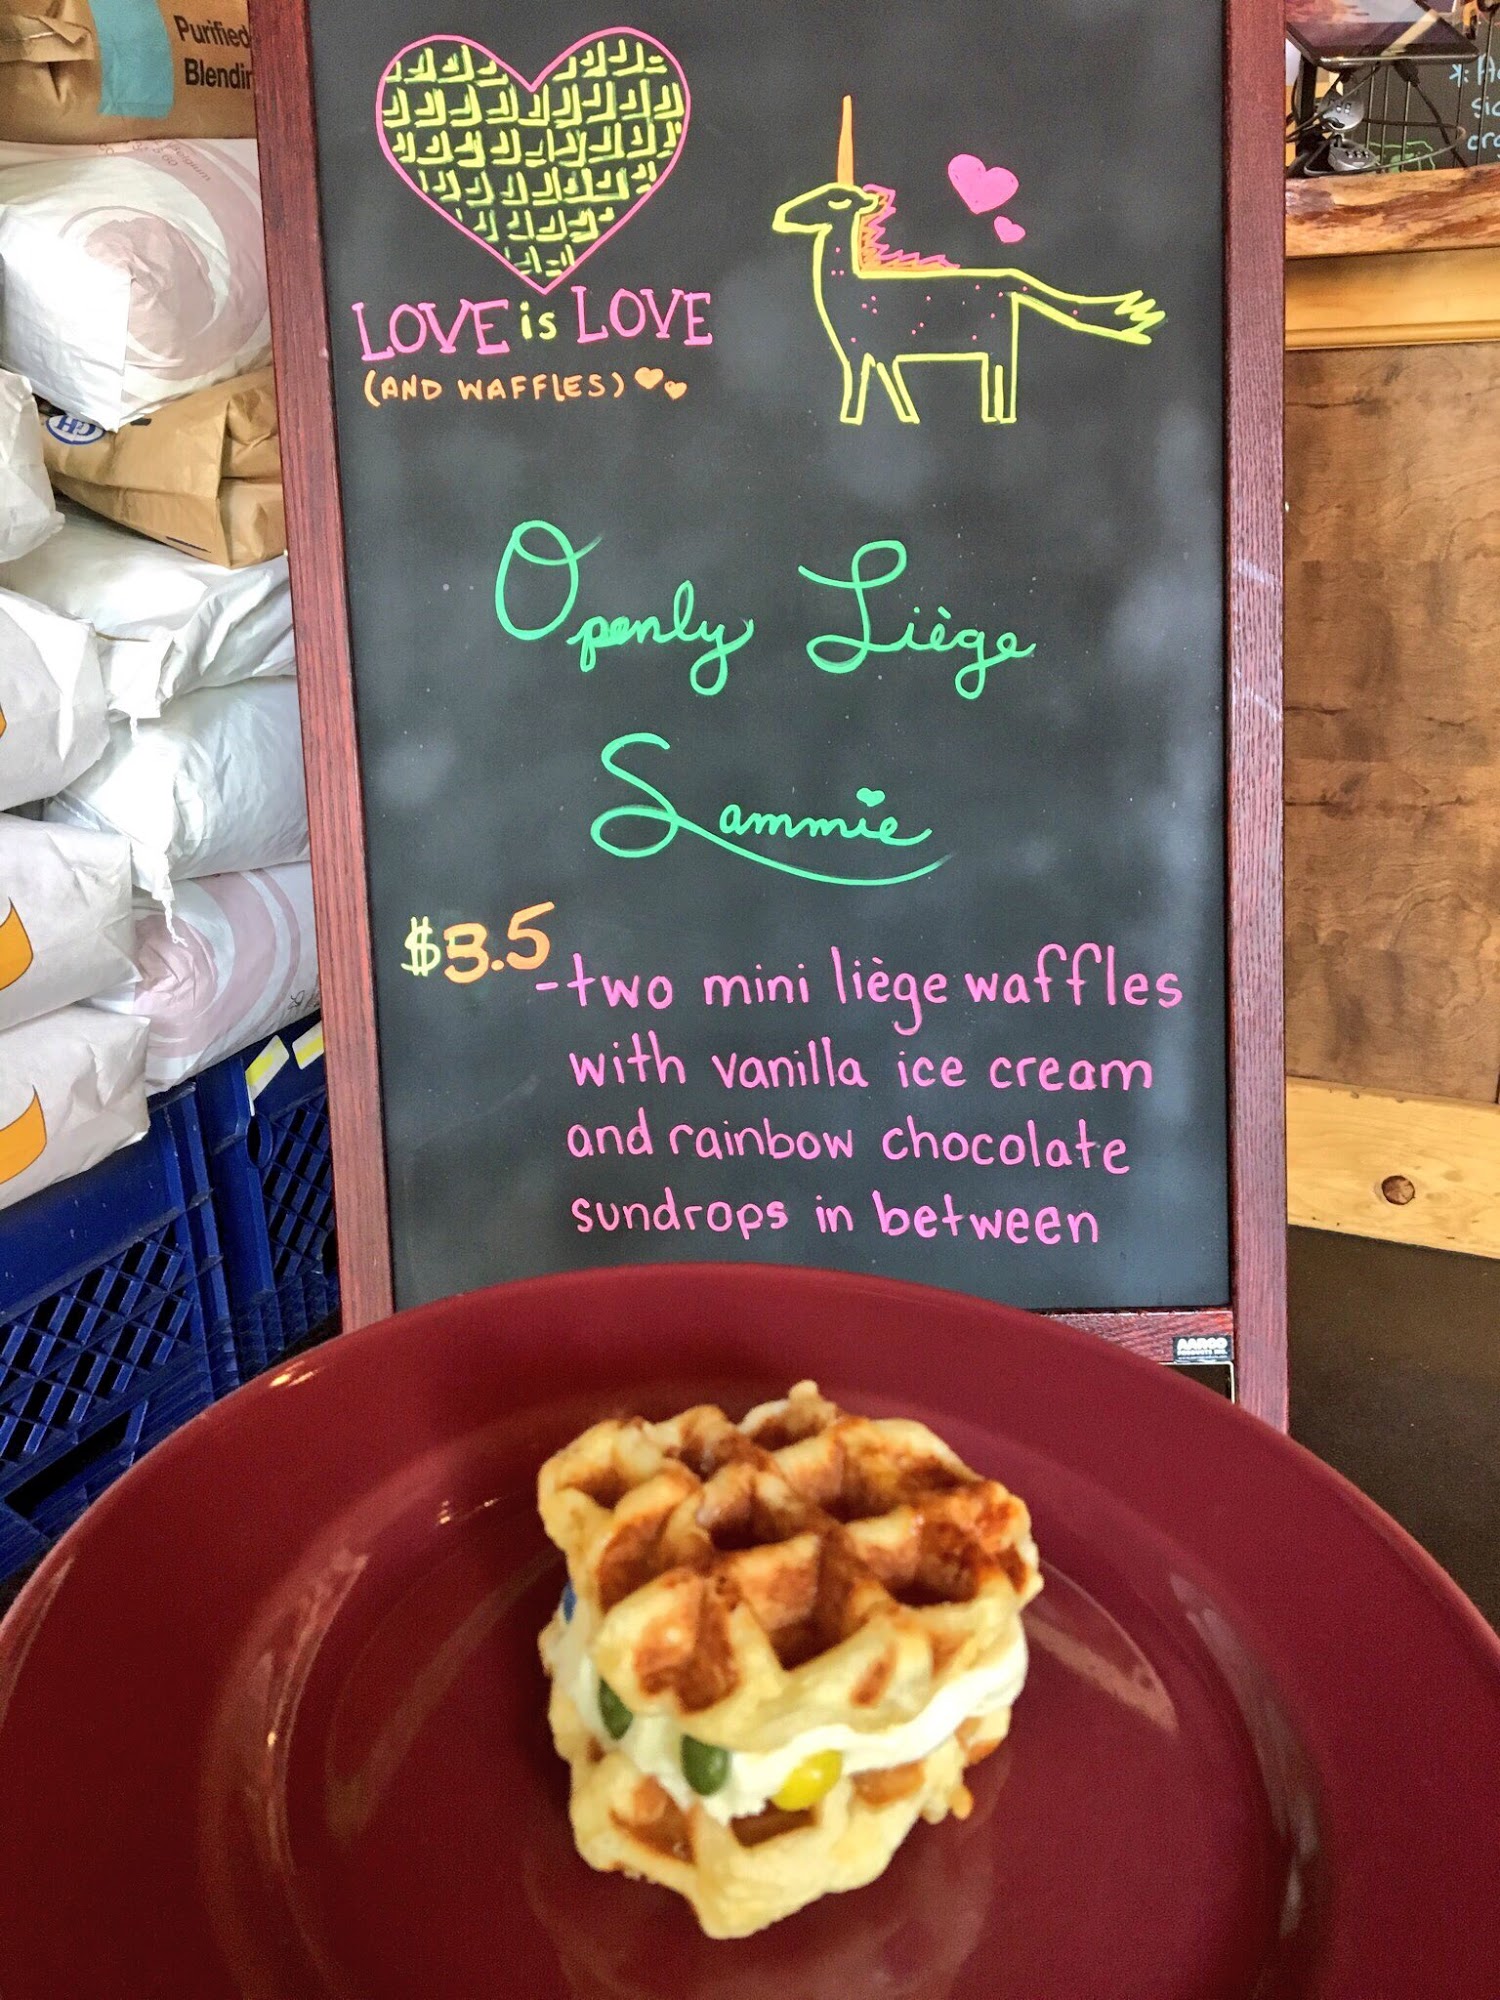 Purified
Blendin
LOVE is LOVE
(AND WAFFLES)
Openly Liège
Sammie
$3.5
- two mini liège waffles
with vanilla ice cream
and rainbow chocolate
sundrops in between
AARCO